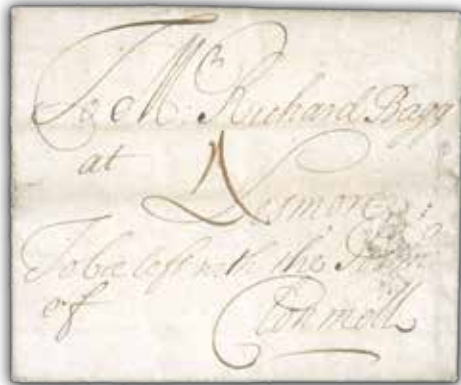 To Mr Richard Bagg
at
Lismore:
To bee left with the
of Clonmell